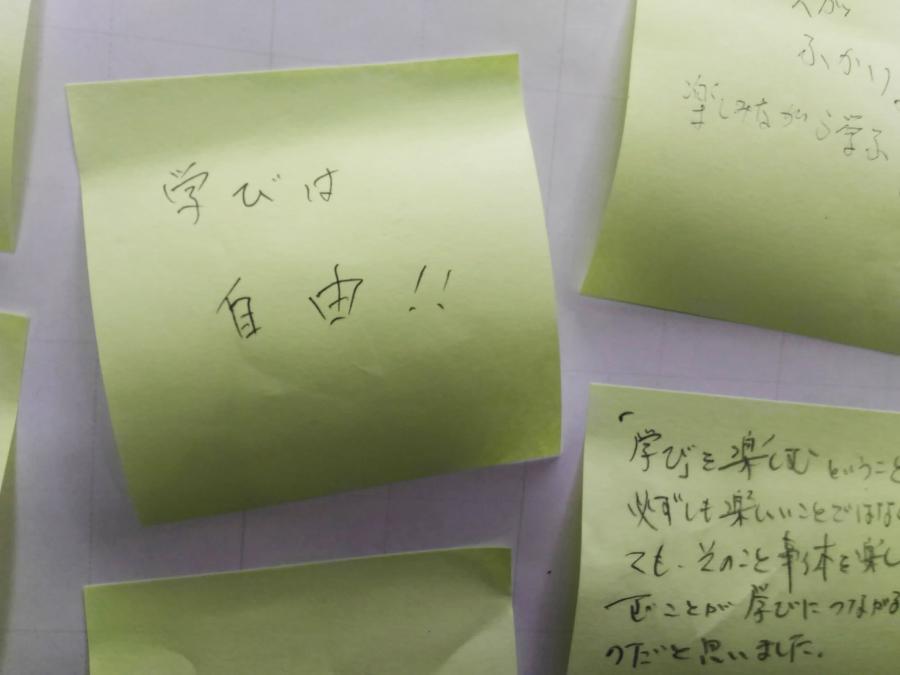 学びは
自由!!
ふかり
楽しみながら学ぶ
「学び」を楽しむということ
必ずしも楽しいことではない
ても、そのこと事体を楽し
むことが学びにつながる
のだと思いました。